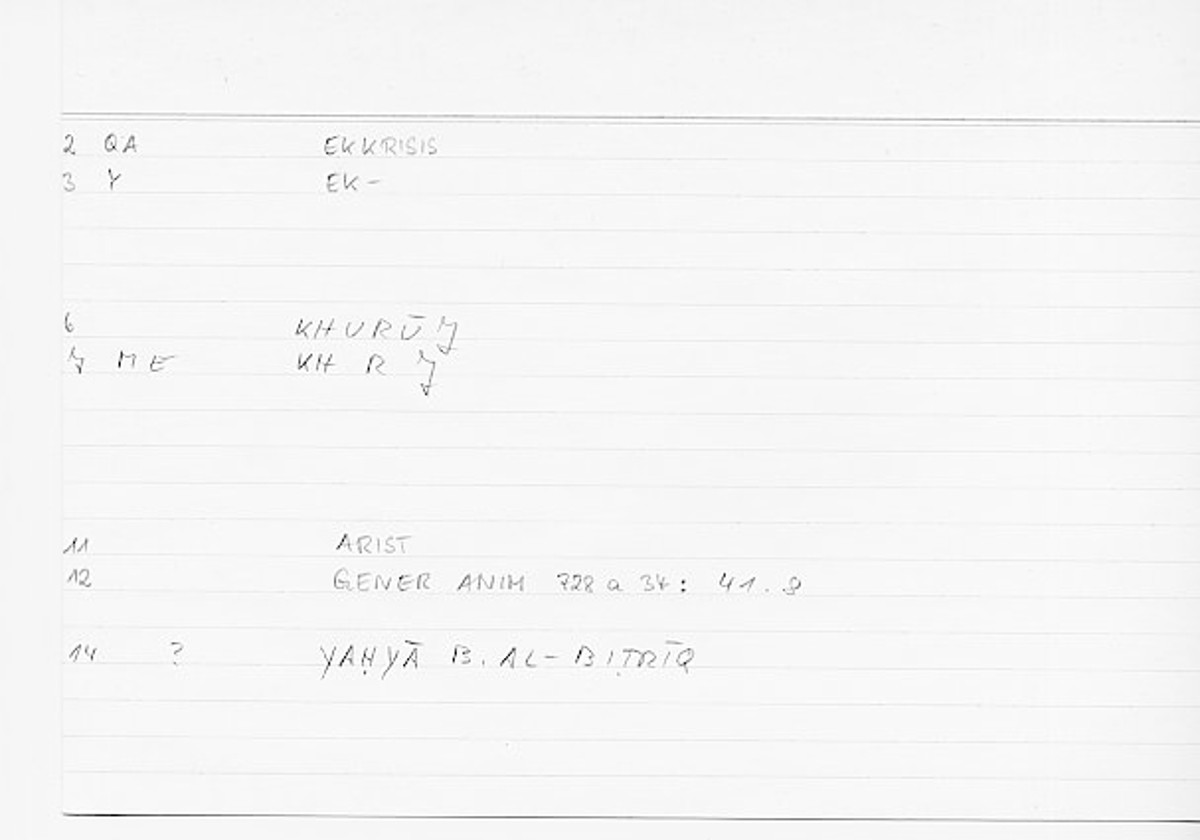 2 QA EKKRISIS
3 Y EK-
6 KHURŪJ
7 ME KH R J
11 ARIST
12 GENER ANIM 728 a 34: 41.9
14 ? YAḤYĀ B. AL-BIṬRĪQ